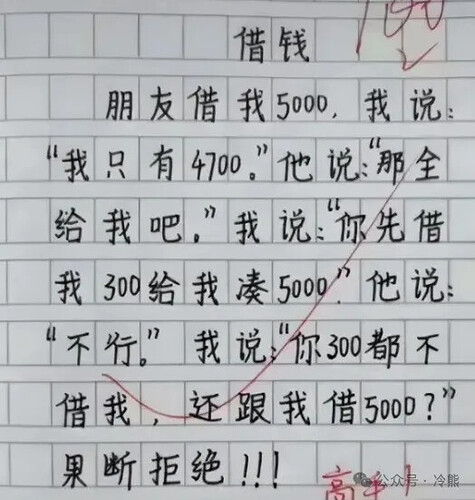 借钱
朋友借我5000，我说：
“我只有4700。”他说：“那全
给我吧。”我说：“你先借
我300给我凑5000”他说：
“不行。”我说：“你300都不
借我，还跟我借5000？”
果断拒绝!!!
公众号·冷熊